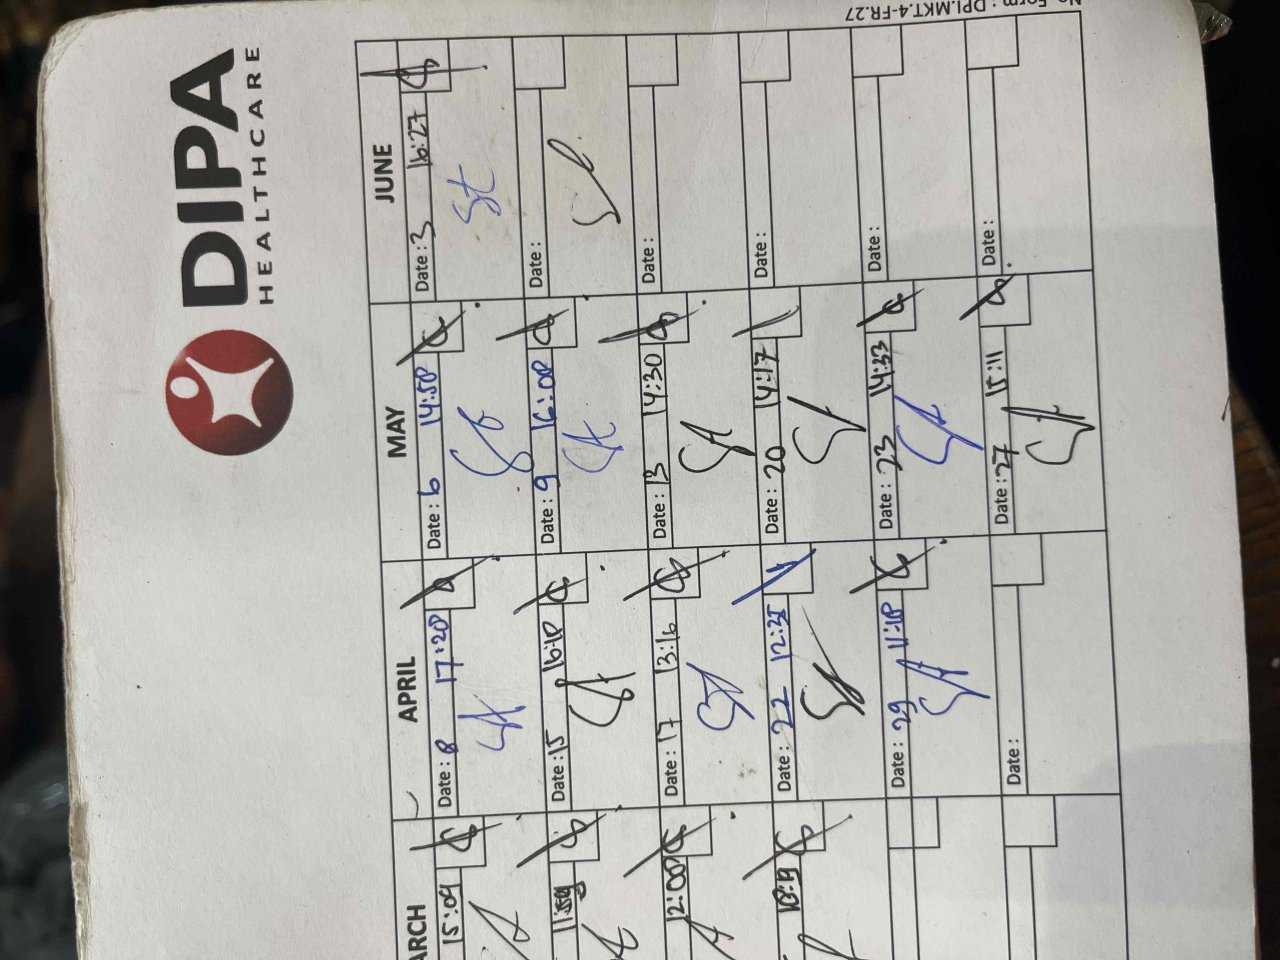 No.Form : DPI.MKT.4-FR.27
DIPA
HEALTHCARE
ARCH APRIL MAY JUNE
15:09
Date : 8 17:20
Date : 6 14:50
Date : 3 16:27
Date : 15 16:10
Date : 9 16:00
Date :
12:00
Date : 17 13:16
Date : 13 14:30
Date :
Date : 22 12:35
Date : 20 14:17
Date :
Date : 29 11:10
Date : 23 14:33
Date :
Date :
Date : 27 15:11
Date :